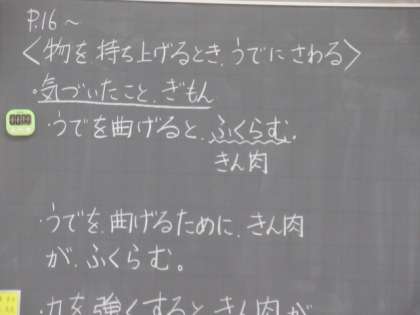 P.16～
〈物を、持ち上げるとき、うでに さわる〉
・気づいたこと、ぎもん
・うでを曲げると、ふくらむ。
きん肉
・うでを、曲げるために、きん肉
が、ふくらむ。
・力を強くすると きん肉が